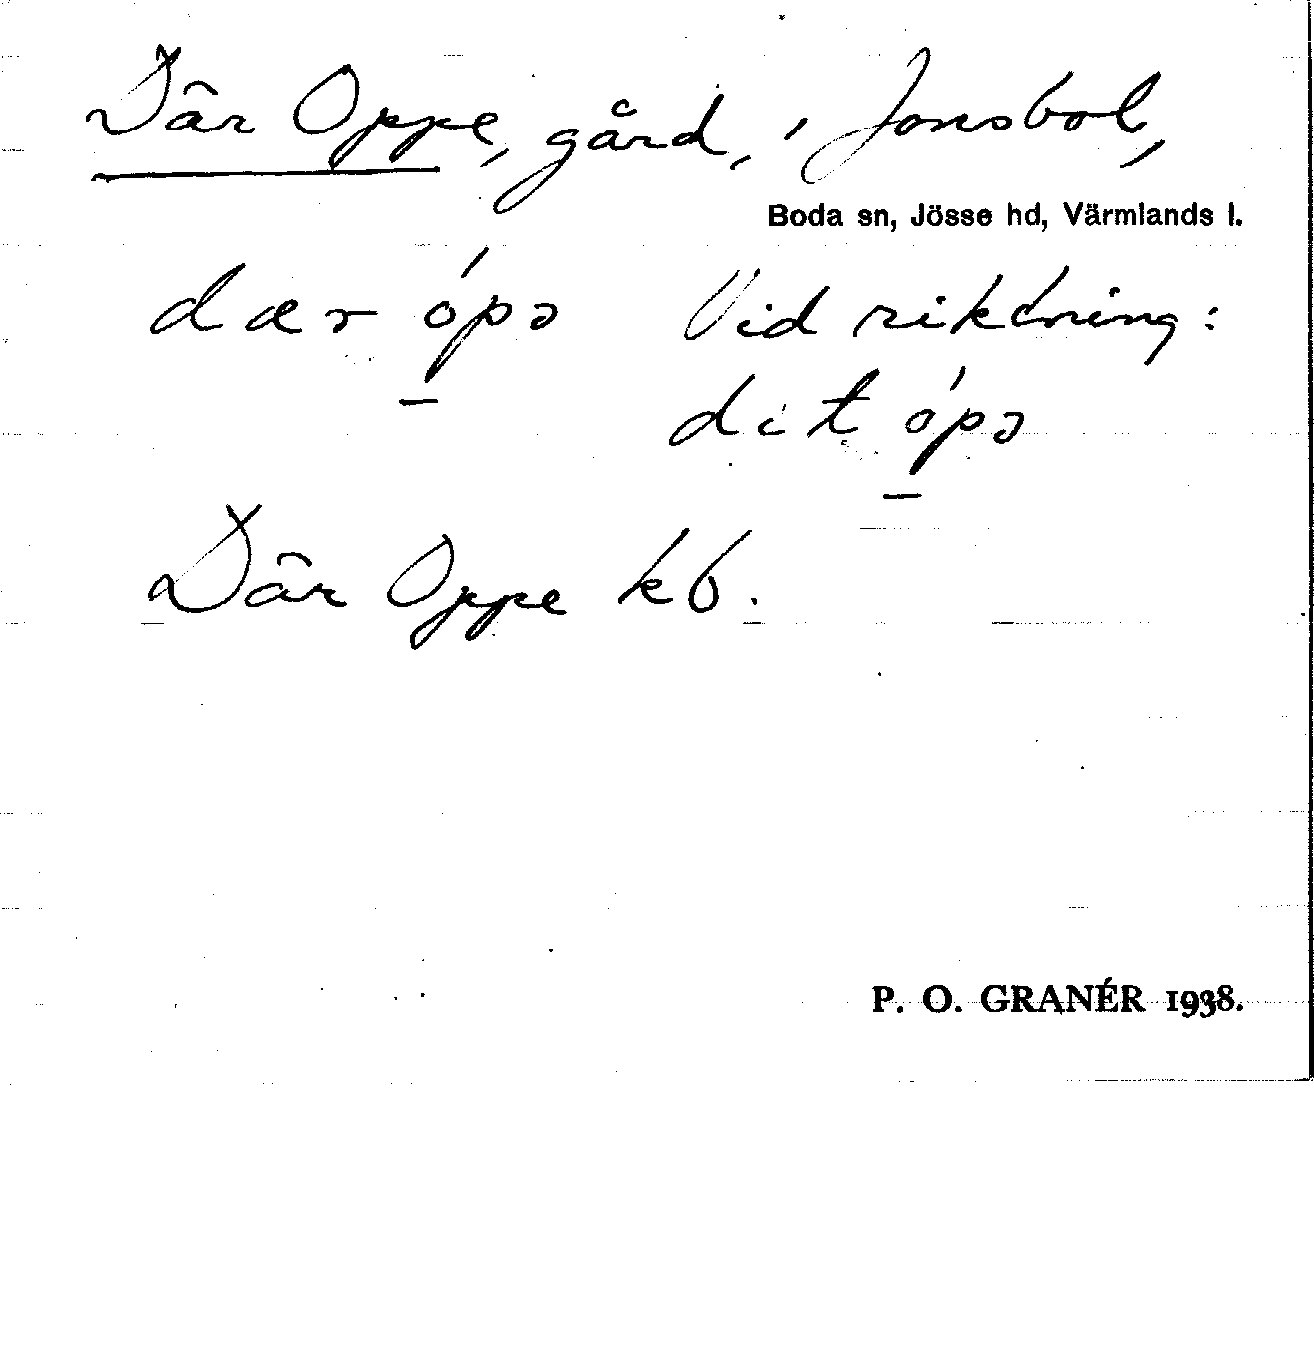 Där Oppe, gård, i Jonsbol,
Boda sn, Jösse hd, Värmlands l.
dær ópə Vid riktning:
dit ópə
Där Oppe kb.
P. O. GRANÉR 1938.